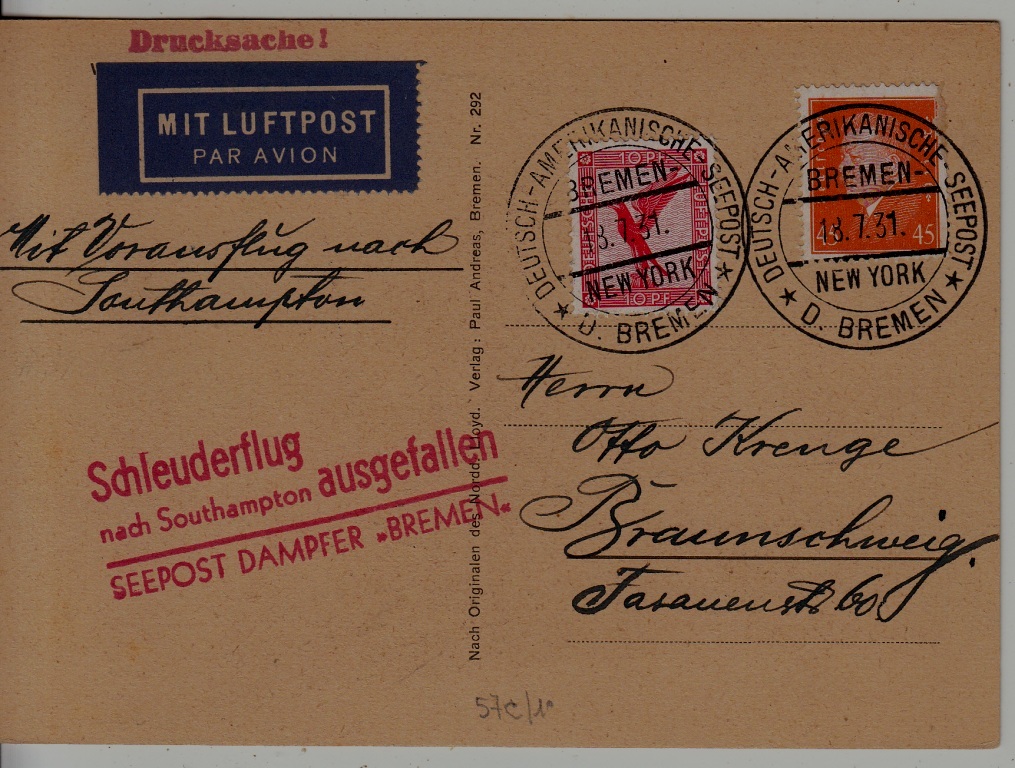 Drucksache!
MIT LUFTPOST
PAR AVION
Mit Vorausflug nach
Southampton
Schleuderflug
nach Southampton ausgefallen
SEEPOST DAMPFER »BREMEN«
Nach Originalen des Nordd. Lloyd. Verlag: Paul Andreas, Bremen. Nr. 292
10 PF
DEUTSCHE
10 PF
DEUTSCH-AMERIKANISCHE-SEEPOST
BREMEN-
18.7.31.
NEW YORK
★ D. BREMEN ★
45
45
DEUTSCH-AMERIKANISCHE-SEEPOST
BREMEN-
18.7.31.
NEW YORK
★ D. BREMEN ★
Herrn
Otto Krenge
Braunschweig.
Fasanenstr. 60.
57c/1°